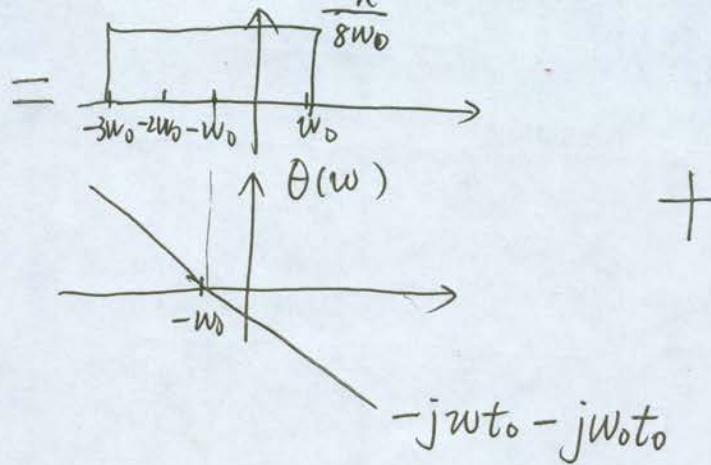 =
8w₀
-3w₀ -2w₀ -w₀ w₀
θ(w)
+
-w₀
-jwt₀ - jw₀t₀